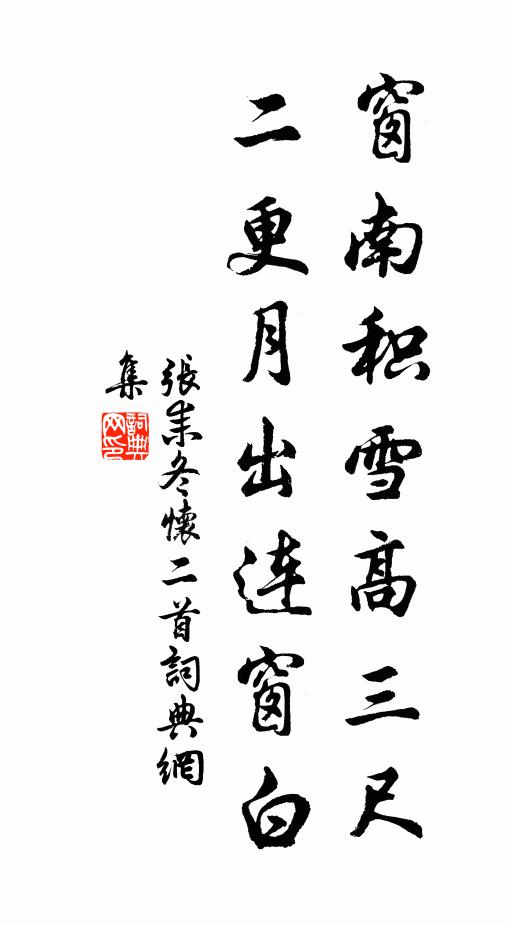 窗南积雪高三尺
二更月出连窗白
張耒冬懷二首詞典網
集
詞典网印